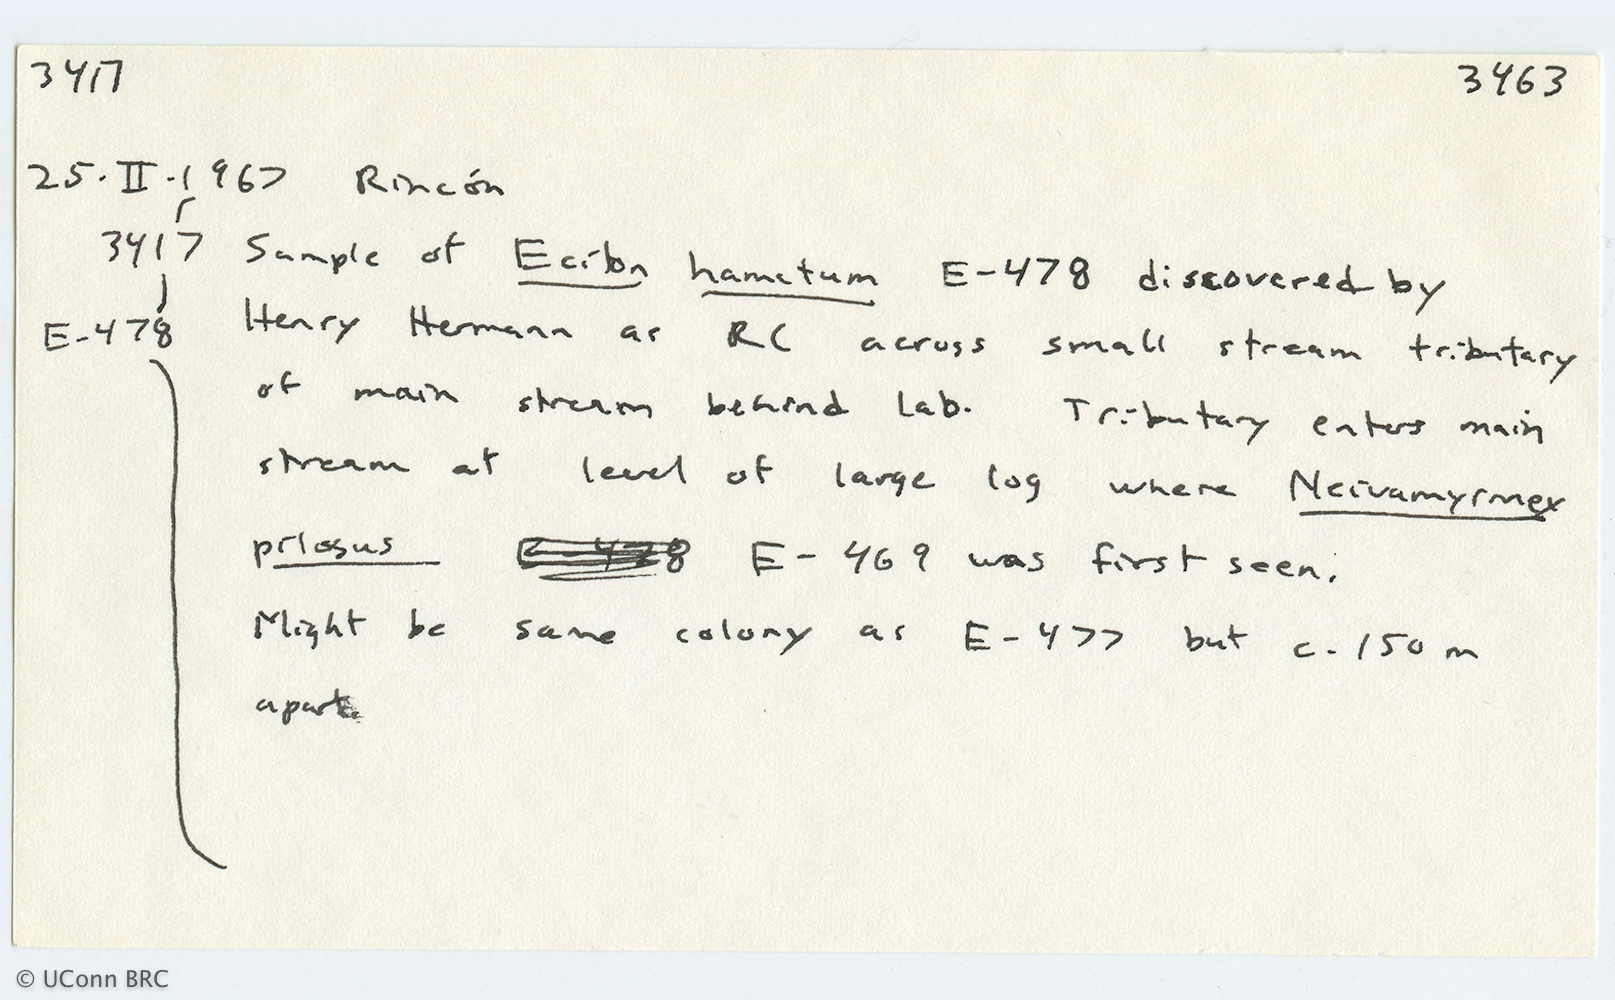 3417 3463
25·II·1967 Rincón
3417 Sample of Eciton hamatum E-478 discovered by
E-478 Henry Hermann as RC across small stream tributary
of main stream behind lab. Tributary enters main
stream at level of large log where Neivamyrmex
pilosus E-469 was first seen.
Might be same colony as E-477 but c. 150 m
apart.
© UConn BRC